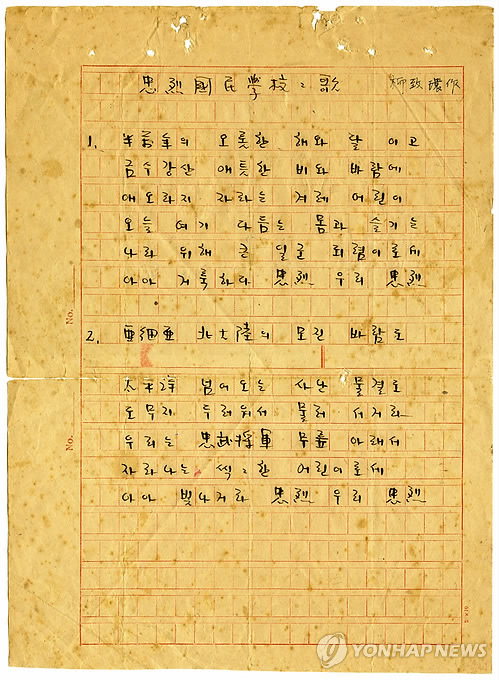 忠烈國民學校〻歌 柳致環作
1. 半萬年의 오롯한 해와 달 이고
금수강산 애틋한 비와 바람에
애오라지 자라는 겨레 어린이
오늘 여기 다듬는 몸과 슬기는
나라 위해 큰 일군 되렴이로세
아아 거룩하다 忠烈 우리 忠烈
No.
2. 亜細亜 北大陸의 모진 바람도
太平洋 넘어오는 사난 물결도
도무지 두려워서 물러 서거라
No.
우리는 忠武將軍 무릎 아래서
자라나는 씩〻한 어린이로세
아아 빛나거라 忠烈 우리 忠烈
YONHAP NEWS